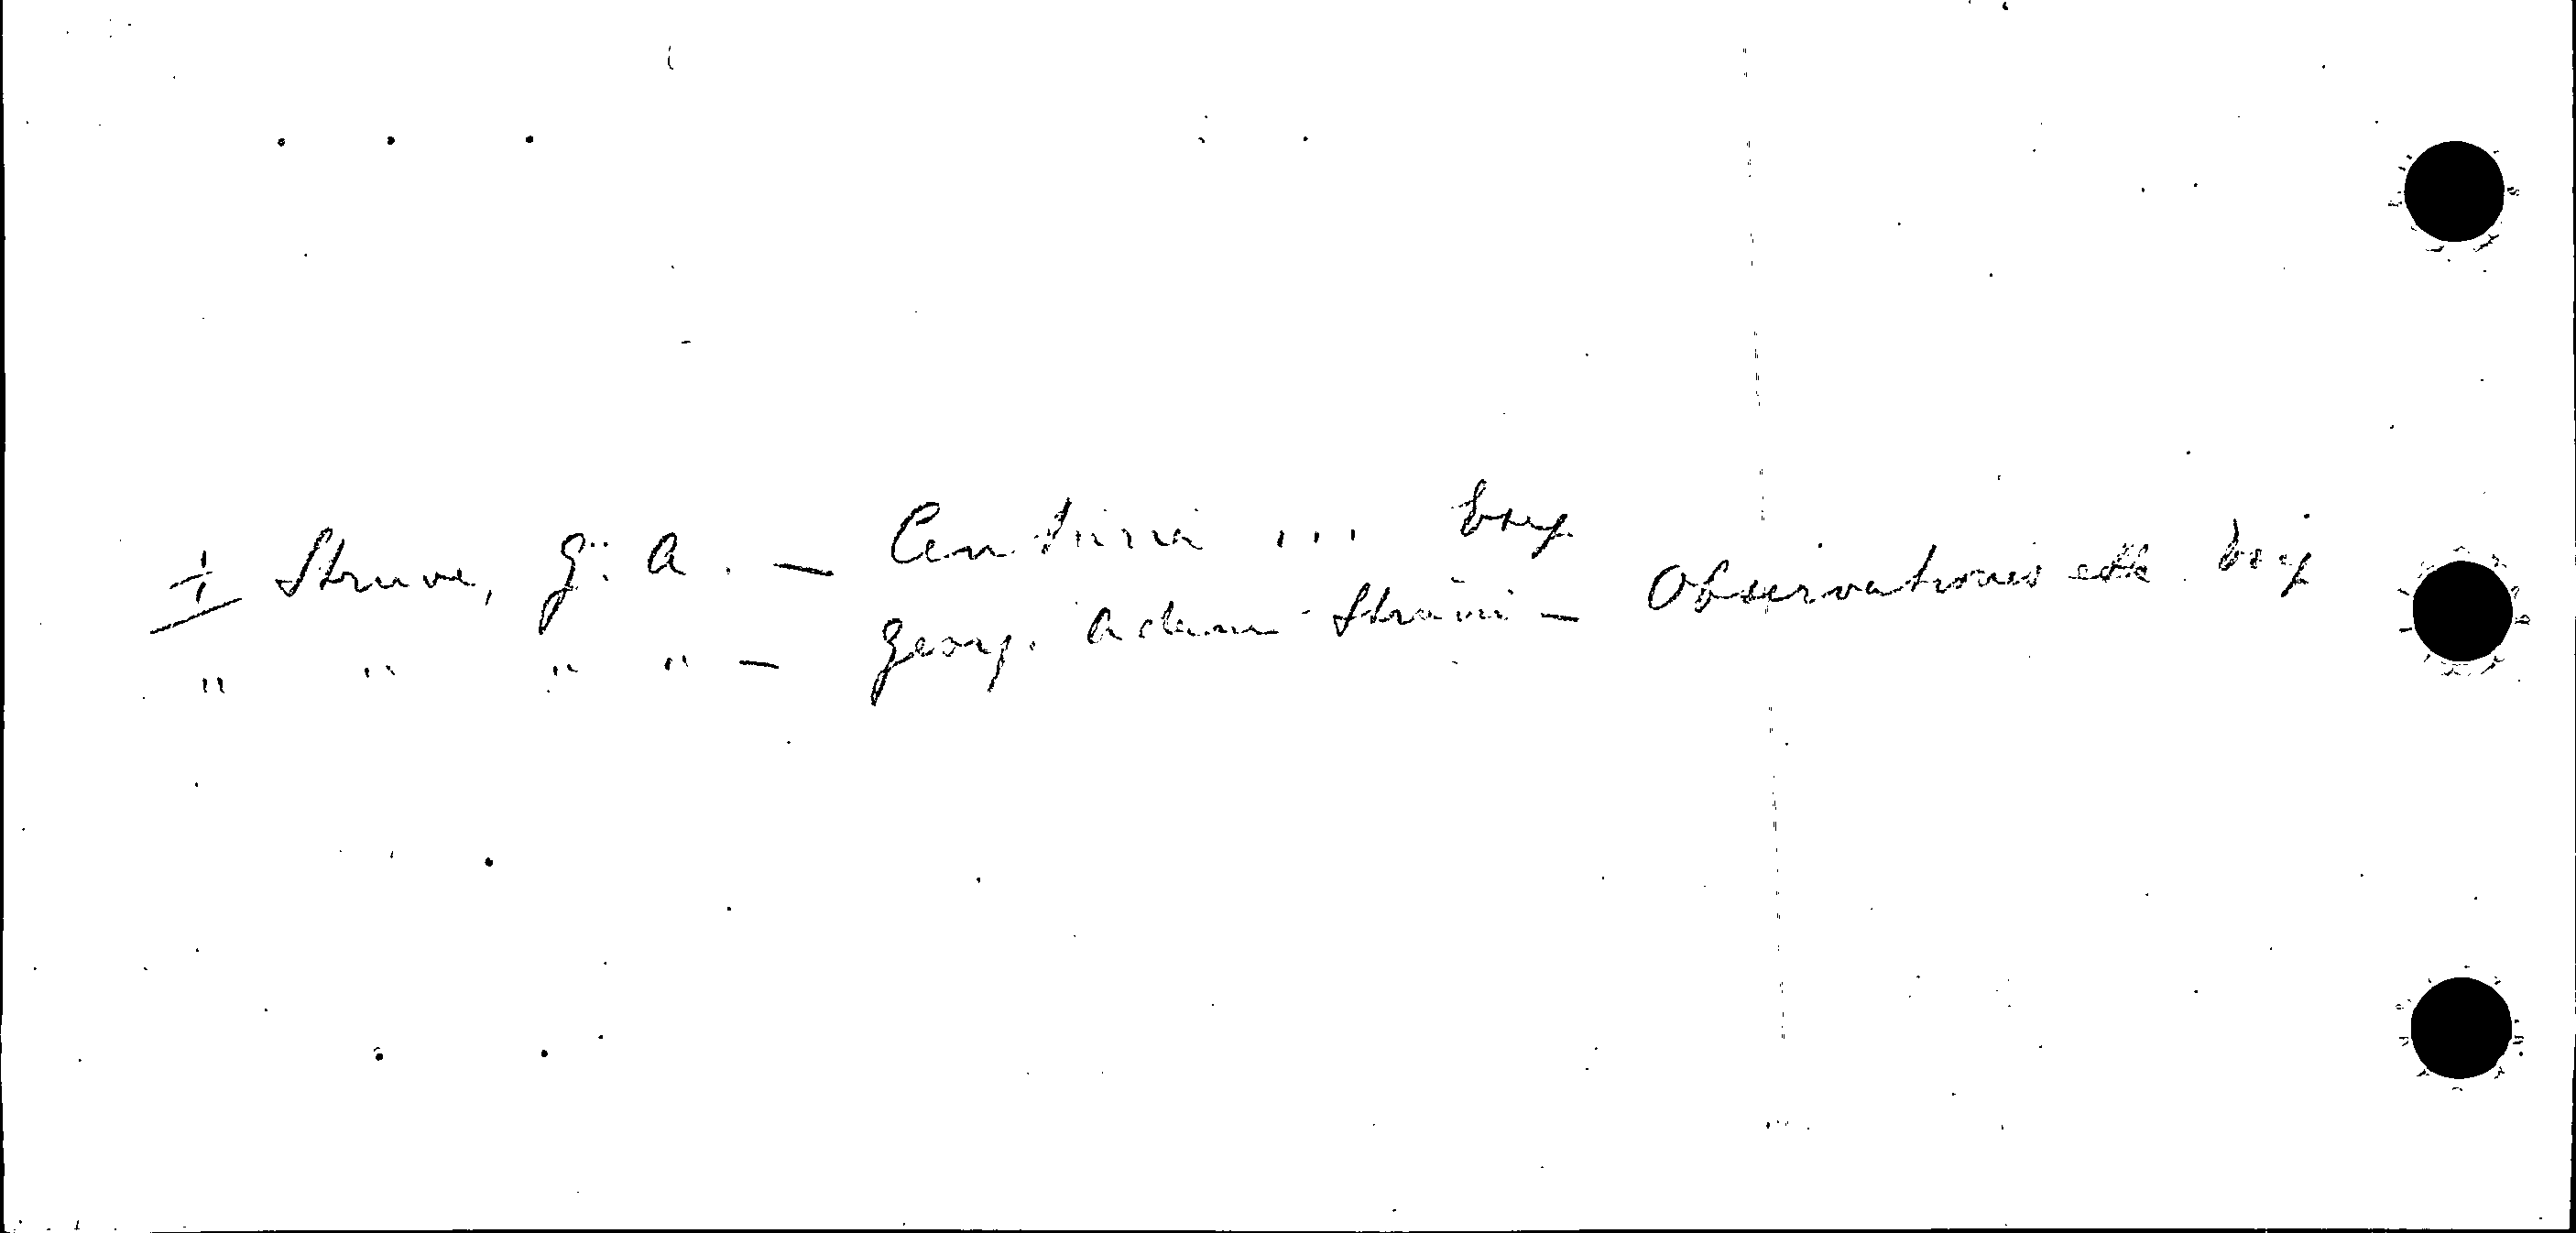 Struve, G. A. — Centuria ...
" " " — Georg. Adam Struvii — Observationes